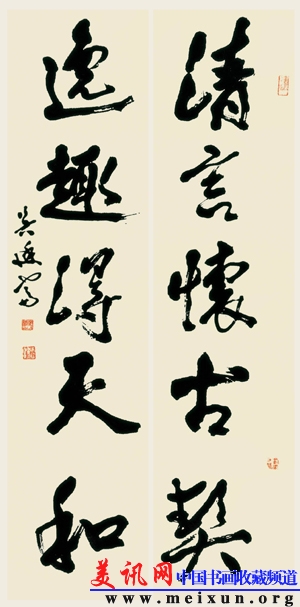 清言懷古契
逸趣得天和
美讯网
中国书画收藏频道
www.meixun.org